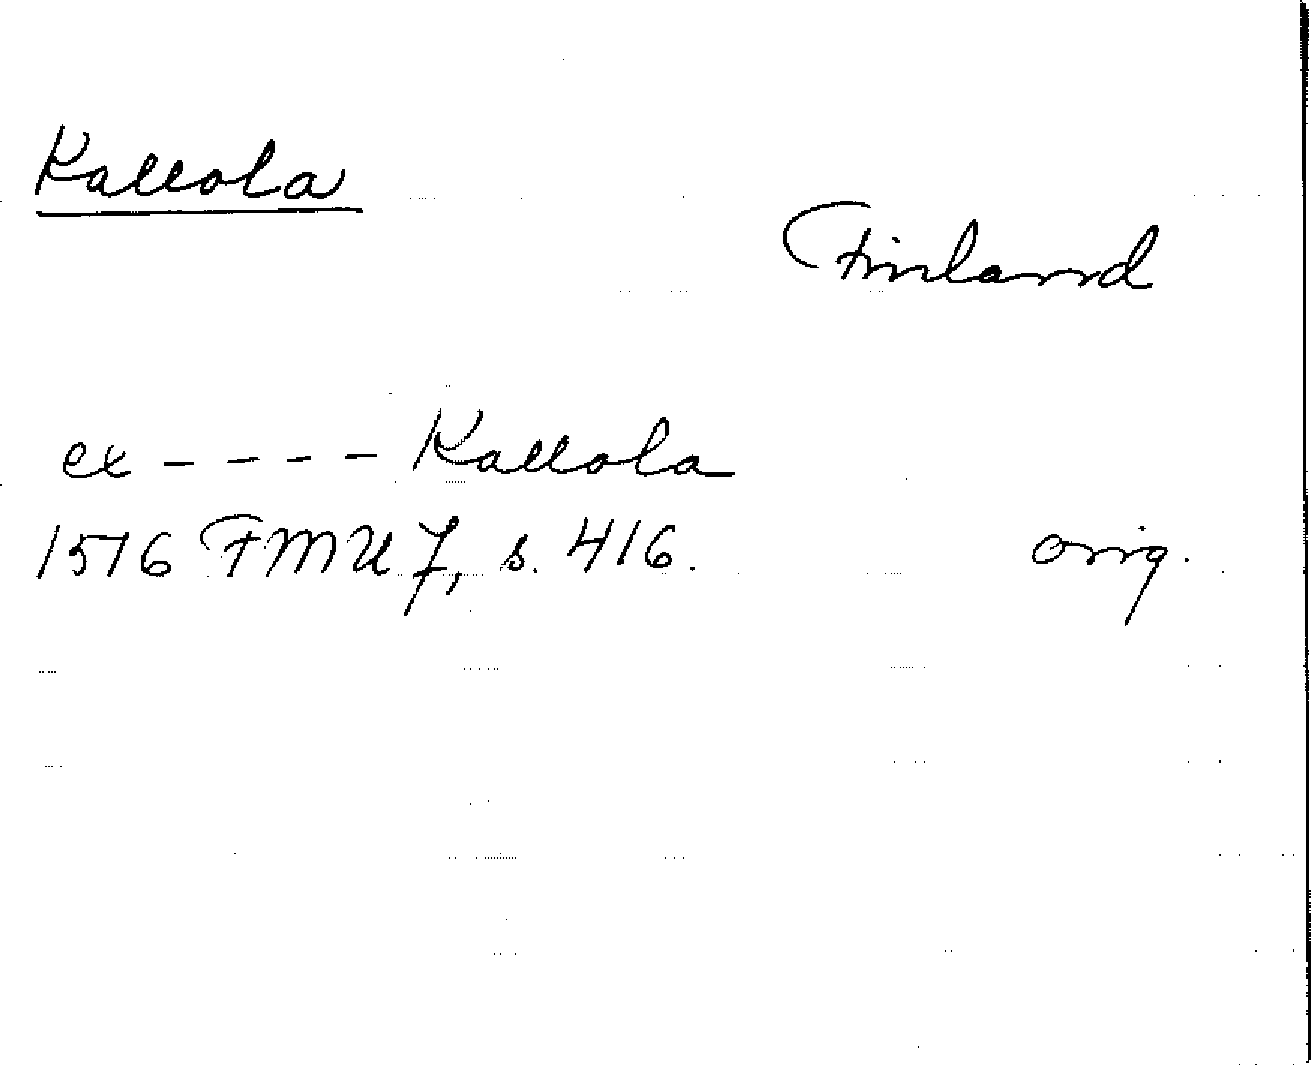 Kallola
Finland
ex - - - - Kallola
1516 FMU 7, s. 416. orig.